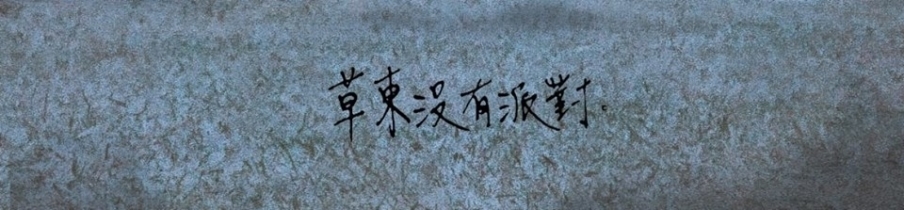 草東沒有派對。